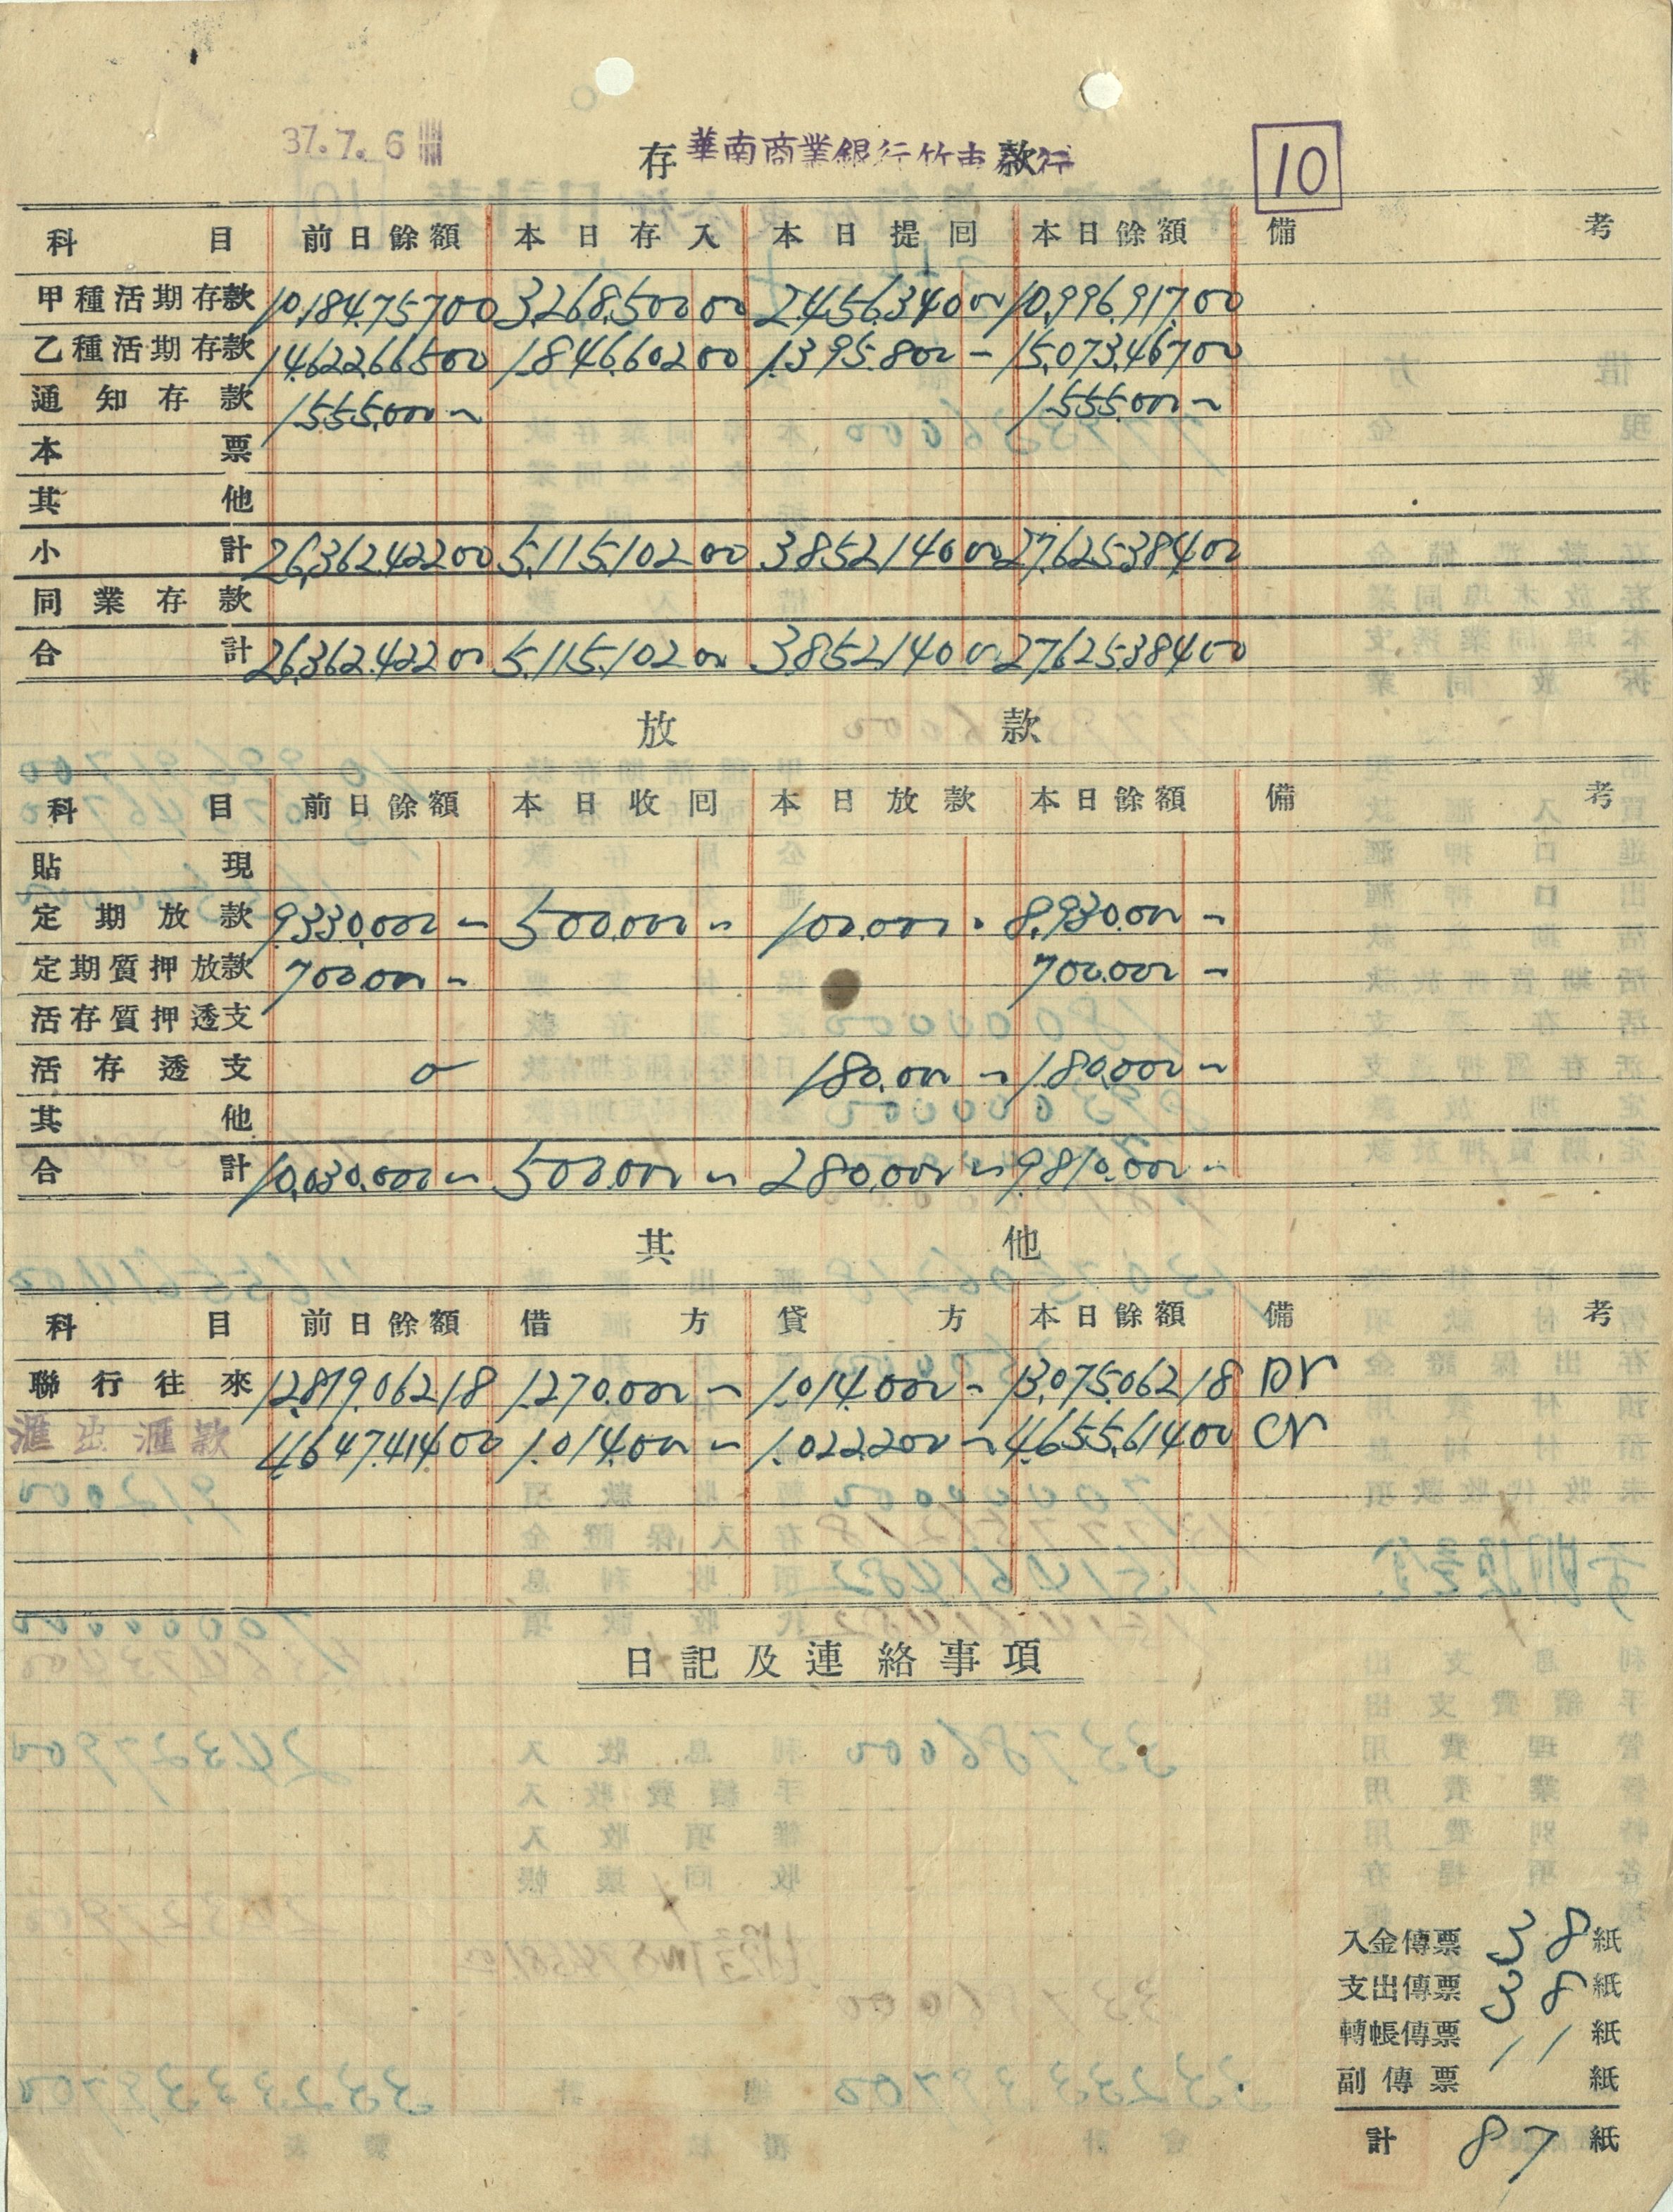 37.7.6
存 華南商業銀行竹東 款
10
科目 前日餘額 本日存入 本日提回 本日餘額 備考
甲種活期存款 10,184,757 00 3,268,500 00 2,456,340 00 10,996,917 00
乙種活期存款 14,622,665 00 1,846,602 00 1,395,800 – 15,073,467 00
通知存款 1,555,000 – 1,555,000 –
本票
其他
小計 26,362,422 00 5,115,102 00 3,852,140 00 27,625,384 00
同業存款
合計 26,362,422 00 5,115,102 00 3,852,140 00 27,625,384 00
放款
科目 前日餘額 本日收回 本日放款 本日餘額 備考
貼現
定期放款 9,330,000 – 500,000 – 100,000 – 8,930,000 –
定期質押放款 700,000 – 700,000 –
活存質押透支
活存透支 0 180,000 – 180,000 –
其他
合計 10,030,000 – 500,000 – 280,000 – 9,810,000 –
其他
科目 前日餘額 借方 貸方 本日餘額 備考
聯行往來 12,819,062 18 1,270,000 – 1,014,000 – 13,075,062 18 Dr
滙出滙款 4,647,414 00 1,014,000 – 1,022,200 – 4,655,614 00 Cr
日記及連絡事項
入金傳票 38 紙
支出傳票 38 紙
轉帳傳票 11 紙
副傳票 紙
計 87 紙